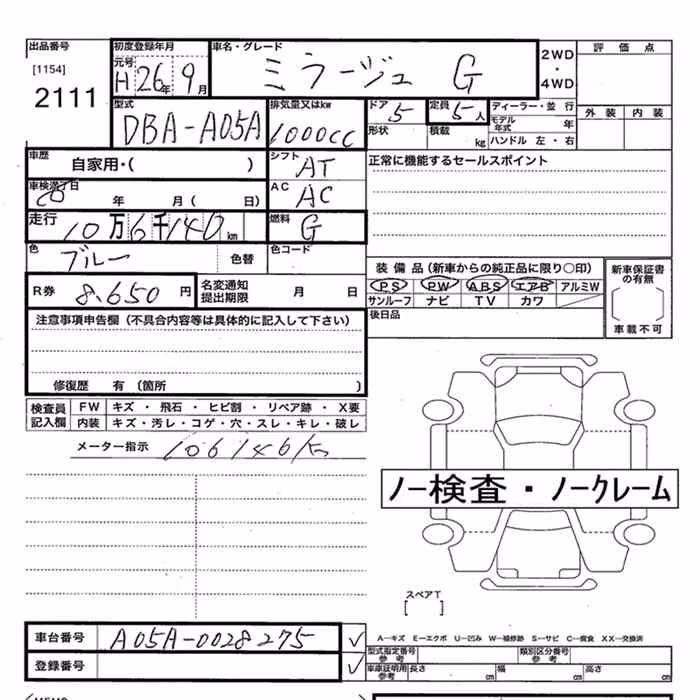 出品番号 初度登録年月 車名・グレード 2WD・4WD 評価点
[1154] 元号 H26年9月 ミラージュ G
2111
型式 排気量又はkw ドア 5 定員 5人 ディーラー・並行 外装 内装
DBA-A05A 1000cc 形状 積載 kg モデル年式 年
ハンドル 左・右
車歴 自家用・( ) シフト AT 正常に機能するセールスポイント
車検満了日 年 月( 日) AC AC
走行 10万6千140km 燃料 G
色 ブルー 色替 色コード
装備品(新車からの純正品に限り○印) 新車保証書の有無
R券 8,650円 名変通知提出期限 月 日 PS PW ABS エアB アルミW
サンルーフ ナビ TV カワ 車載不可
注意事項申告欄(不具合内容等は具体的に記入して下さい) 後日品
修復歴 有〔箇所 〕
検査員記入欄 FW キズ・飛石・ヒビ割・リペア跡・X要
内装 キズ・汚レ・コゲ・穴・スレ・キレ・破レ
メーター指示 106146km
ノー検査・ノークレーム
スペアT
[ ]
車台番号 A05A-0028275 ✓ A―キズ E―エクボ U―凹み W―補修跡 S―サビ C―腐食 XX―交換済
型式指定番号参考 類別区分番号参考
登録番号 ✓ 車庫証明用参考 長さ cm 幅 cm 高さ cm
MEMO